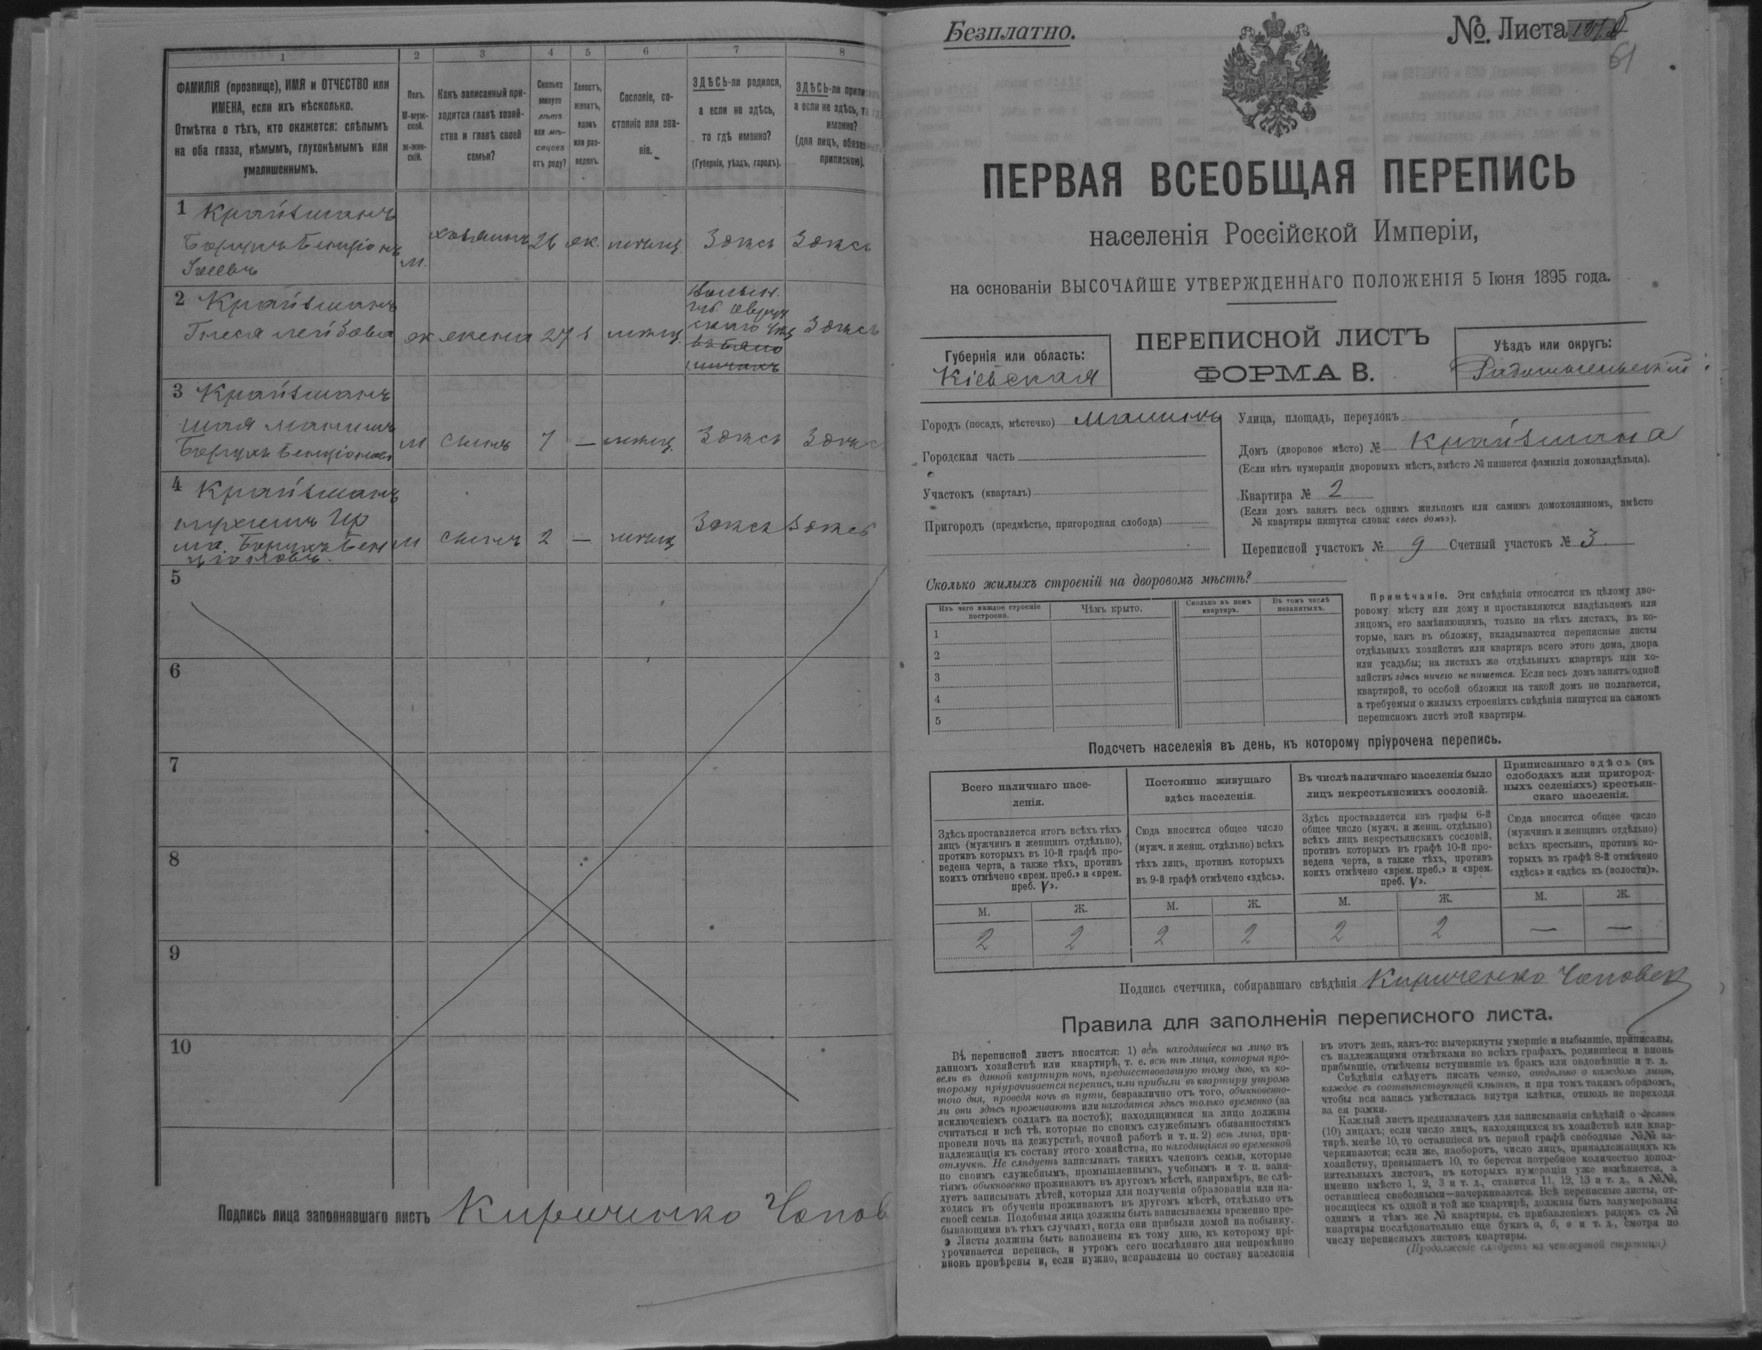 1
2
3
4
5
6
7
8
ФАМИЛІЯ (прозвище), ИМЯ и ОТЧЕСТВО или
ИМЕНА, если ихъ нѣсколько.
Отмѣтка о тѣхъ, кто окажется: слѣпымъ
на оба глаза, нѣмымъ, глухонѣмымъ или
умалишеннымъ.
Полъ.
М-муж-
ской.
Ж-жен-
скій.
Какъ записанный при-
ходится главѣ хозяй-
ства и главѣ своей
семьи?
Сколько
минуло
лѣтъ
или мѣ-
сяцевъ
отъ роду?
Холостъ,
женатъ,
вдовъ
или раз-
веденъ.
Сословіе, со-
стояніе или зва-
ніе.
ЗДѢСЬ-ли родился,
а если не здѣсь,
то гдѣ именно?
(Губернія, уѣздъ, городъ).
ЗДѢСЬ-ли припи
а если не здѣсь, то гд
именно?
(для лицъ, обязан
припискою).
1 Крайзманъ
Борухъ Бенціонъ
м хозяинъ 26 ж. мѣщ. Здѣсь Здѣсь
2 Крайзманъ
Лейбова ж жена 27 з мѣщ. Здѣсь
Волын.
губ. Овруч
скаго
3 Крайзманъ
Борухъ Бенціоновъ м сынъ 7 — мѣщ. Здѣсь Здѣсь
4 Крайзманъ
Борухъ Бен
ціоновъ. м сынъ 2 — мѣщ Здѣсь Здѣсь
5
6
7
8
9
10
Подпись лица заполнявшаго листъ Кириченко
Безплатно.
№. Листа
61
ПЕРВАЯ ВСЕОБЩАЯ ПЕРЕПИСЬ
населенія Россійской Имперіи,
на основаніи ВЫСОЧАЙШЕ УТВЕРЖДЕННАГО ПОЛОЖЕНІЯ 5 Іюня 1895 года.
ПЕРЕПИСНОЙ ЛИСТЪ
ФОРМА В.
Губернія или область:
Кіевская
Уѣздъ или округъ:
Радомысльскій
Городъ (посад, мѣстечко) Малинъ
Городская часть
Участокъ (кварталъ)
Пригородъ (предмѣстье, пригородная слобода)
Улица, площадь, переулокъ
Домъ (дворовое мѣсто) № Крайзмана
(Если нѣтъ нумераціи дворовыхъ мѣстъ, вмѣсто № пишется фамилія домовладѣльца).
Квартира № 2
(Если домъ занятъ весь однимъ жильцомъ или самимъ домохозяиномъ, вмѣсто
№ квартиры пишутся слова: «весь домъ»).
Переписной участокъ № 9 Счетный участокъ № 3
Сколько жилыхъ строеній на дворовомъ мѣстѣ?
Изъ чего каждое строеніе
построено.
Чѣмъ крыто.
Сколько въ немъ
квартиръ.
Въ томъ числѣ
незанятыхъ.
1
2
3
4
5
Примѣчаніе. Эти свѣдѣнія относятся къ цѣлому дво-
ровому мѣсту или дому и проставляются владѣльцемъ или
лицомъ, его замѣняющимъ, только на тѣхъ листахъ, въ ко-
торые, какъ въ обложку, вкладываются переписные листы
отдѣльныхъ хозяйствъ или квартиръ всего этого дома, двора
или усадьбы; на листахъ же отдѣльныхъ квартиръ или хо-
зяйствъ здѣсь ничего не пишется. Если весь домъ занятъ одной
квартирой, то особой обложки на такой домъ не полагается,
а требуемыя о жилыхъ строеніяхъ свѣдѣнія пишутся на самомъ
переписномъ листѣ этой квартиры.
Подсчетъ населенія въ день, къ которому пріурочена перепись.
Всего наличнаго насе-
ленія.
Здѣсь проставляется итогъ всѣхъ тѣхъ
лицъ (мужчинъ и женщинъ отдѣльно),
противъ которыхъ въ 10-й графѣ про-
ведена черта, а также тѣхъ, противъ
коихъ отмѣчено «врем. преб.» и «врем.
преб. V».
Постоянно живущаго
здѣсь населенія.
Сюда вносится общее число
(мужч. и женщ. отдѣльно) всѣхъ
тѣхъ лицъ, противъ которыхъ
въ 9-й графѣ отмѣчено «здѣсь».
Въ числѣ наличнаго населенія было
лицъ некрестьянскихъ сословій.
Здѣсь проставляется изъ графы 6-й
общее число (мужч. и женщ. отдѣльно)
всѣхъ лицъ некрестьянскихъ сословій,
противъ которыхъ въ графѣ 10-й про-
ведена черта, а также тѣхъ, противъ
коихъ отмѣчено «врем. преб.» и «врем.
преб. V».
Приписаннаго здѣсь (въ
слободахъ или пригород-
ныхъ селеніяхъ) крестьян-
скаго населенія.
Сюда вносится общее число
(мужчинъ и женщинъ отдѣльно)
всѣхъ крестьянъ, противъ ко-
торыхъ въ графѣ 8-й отмѣчено
«здѣсь» и «здѣсь къ (волости)».
М. Ж. М. Ж. М. Ж. М. Ж.
2 2 2 2 2 2 — —
Подпись счетчика, собиравшаго свѣдѣнія Кириченко
Правила для заполненія переписного листа.
Въ переписной листъ вносятся: 1) всѣ находящіеся на лицо въ
данномъ хозяйствѣ или квартирѣ, т. е. всѣ тѣ лица, которыя про-
вели въ данной квартирѣ ночь, предшествовавшую тому дню, къ ко-
торому пріурочивается перепись, или прибыли въ квартиру утромъ
того дня, проведя ночь въ пути, безразлично отъ того, обыкновенно-
ли они здѣсь проживаютъ или находятся здѣсь только временно (за
исключеніемъ солдатъ на постоѣ); находящимися на лицо должны
считаться и всѣ тѣ, которые по своимъ служебнымъ обязанностямъ
провели ночь на дежурствѣ, ночной работѣ и т. п. 2) всѣ лица, при-
надлежащія къ составу этого хозяйства, но находящіяся во временной
отлучкѣ. Не слѣдуетъ записывать такихъ членовъ семьи, которые
по своимъ служебнымъ, промышленнымъ, учебнымъ и т. п. заня-
тіямъ обыкновенно проживаютъ въ другомъ мѣстѣ, напримѣръ, не слѣ-
дуетъ записывать дѣтей, которыя для полученія образованія или на-
ходясь въ обученіи проживаютъ въ другомъ мѣстѣ, отдѣльно отъ
своей семьи. Подобныя лица должны быть вписываемы временно пре-
бывающими въ тѣхъ случаяхъ, когда они прибыли домой на побывку.
Листы должны быть заполнены къ тому дню, къ которому прі-
урочивается перепись, и утромъ сего послѣдняго дня непремѣнно
вновь провѣрены и, если нужно, исправлены по составу населенія
въ этотъ день, какъ-то: вычеркнуты умершіе и выбывшіе, приписаны,
съ надлежащими отмѣтками во всѣхъ графахъ, родившіеся и вновь
прибывшіе, отмѣчены вступившіе въ бракъ или овдовѣвшіе и т. д.
Свѣдѣнія слѣдуетъ писать четко, отдѣльно о каждомъ лицѣ,
каждое въ соотвѣтствующей клѣткѣ, и при томъ такимъ образомъ,
чтобы вся запись умѣстилась внутри клѣтки, отнюдь не переходя
за ея рамки.
Каждый листъ предназначенъ для записыванія свѣдѣній о десяти
(10) лицахъ; если число лицъ, находящихся въ хозяйствѣ или квар-
тирѣ, менѣе 10, то оставшіеся въ первой графѣ свободные №№ за-
черкиваются; если же, наоборотъ, число лицъ, принадлежащихъ къ
хозяйству, превышаетъ 10, то берется потребное количество допол-
нительныхъ листовъ, въ которыхъ нумерація уже измѣняется, а
именно вмѣсто 1, 2, 3 и т. д., ставится 11, 12, 13 и т. д., а №№,
оставшіеся свободными—зачеркиваются. Всѣ переписные листы, от-
носящіеся къ одной и той же квартирѣ, должны быть занумерованы
однимъ и тѣмъ же № квартиры, съ прибавленіемъ рядомъ съ №
квартиры послѣдовательно еще буквъ а, б, в и т. д., смотря по
числу переписныхъ листовъ квартиры.
(Продолженіе слѣдуетъ на четвертой страницѣ)